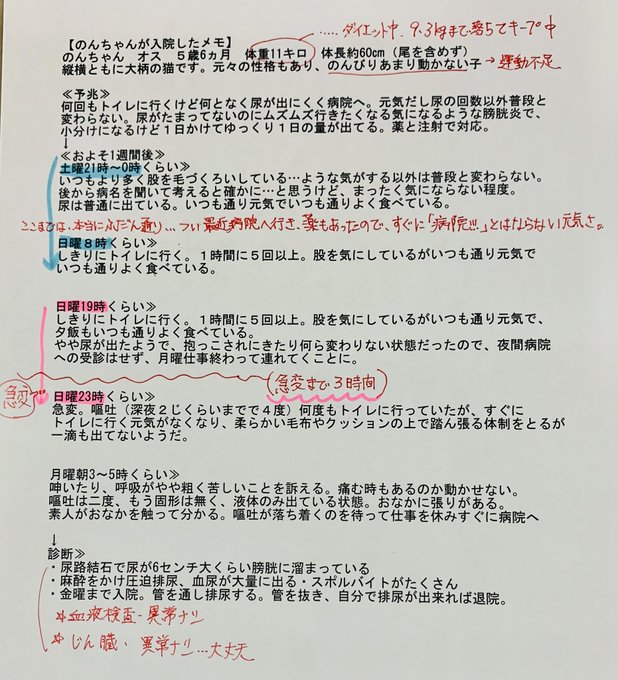 ……ダイエット中. 9.3kgまで落ちてキープ中
【のんちゃんが入院したメモ】
のんちゃん　オス　５歳６ヵ月　体重11キロ　体長約60cm（尾を含めず）
縦横ともに大柄の猫です。元々の性格もあり、のんびりあまり動かない子 → 運動不足
≪予兆≫
何回もトイレに行くけど何となく尿が出にくく病院へ。元気だし尿の回数以外普段と
変わらない。尿がたまってないのにムズムズ行きたくなる気になるような膀胱炎で、
小分けになるけど１日かけてゆっくり１日の量が出てる。薬と注射で対応。
↓
≪およそ1週間後≫
土曜21時～0時くらい≫
いつもより多く股を毛づくろいしている…ような気がする以外は普段と変わらない。
後から病名を聞いて考えると確かに…と思うけど、まったく気にならない程度。
尿は普通に出ている。いつも元気でいつも通りよく食べている。
ここまでは、本当にふだん通り…つい最近病院へ行き、薬もあったので、すぐに「病院!!!」とはならない元気さ。
日曜８時くらい≫
しきりにトイレに行く。１時間に５回以上。股を気にしているがいつも通り元気で
いつも通りよく食べている。
日曜19時くらい≫
しきりにトイレに行く。１時間に５回以上。股を気にしているがいつも通り元気で、
夕飯もいつも通りよく食べている。
やや尿が出たようで、抱っこされにきたり何ら変わりない状態だったので、夜間病院
への受診はせず、月曜仕事終わって連れてくことに。
急変まで３時間
急変
日曜23時くらい≫
急変。嘔吐（深夜２じくらいまでで４度）何度もトイレに行っていたが、すぐに
トイレに行く元気がなくなり、柔らかい毛布やクッションの上で踏ん張る体制をとるが
一滴も出てないようだ。
月曜朝3～5時くらい≫
呻いたり、呼吸がやや粗く苦しいことを訴える。痛む時もあるのか動かせない。
嘔吐は二度、もう固形は無く、液体のみ出ている状態。おなかに張りがある。
素人がおなかを触って分かる。嘔吐が落ち着くのを待って仕事を休みすぐに病院へ
↓
診断≫
・尿路結石で尿が6センチ大くらい膀胱に溜まっている
・麻酔をかけ圧迫排尿、血尿が大量に出る・スポルバイトがたくさん
・金曜まで入院。管を通し排尿する。管を抜き、自分で排尿が出来れば退院。
＊血液検査・異常ナシ
＊じん臓・異常ナシ…大丈夫